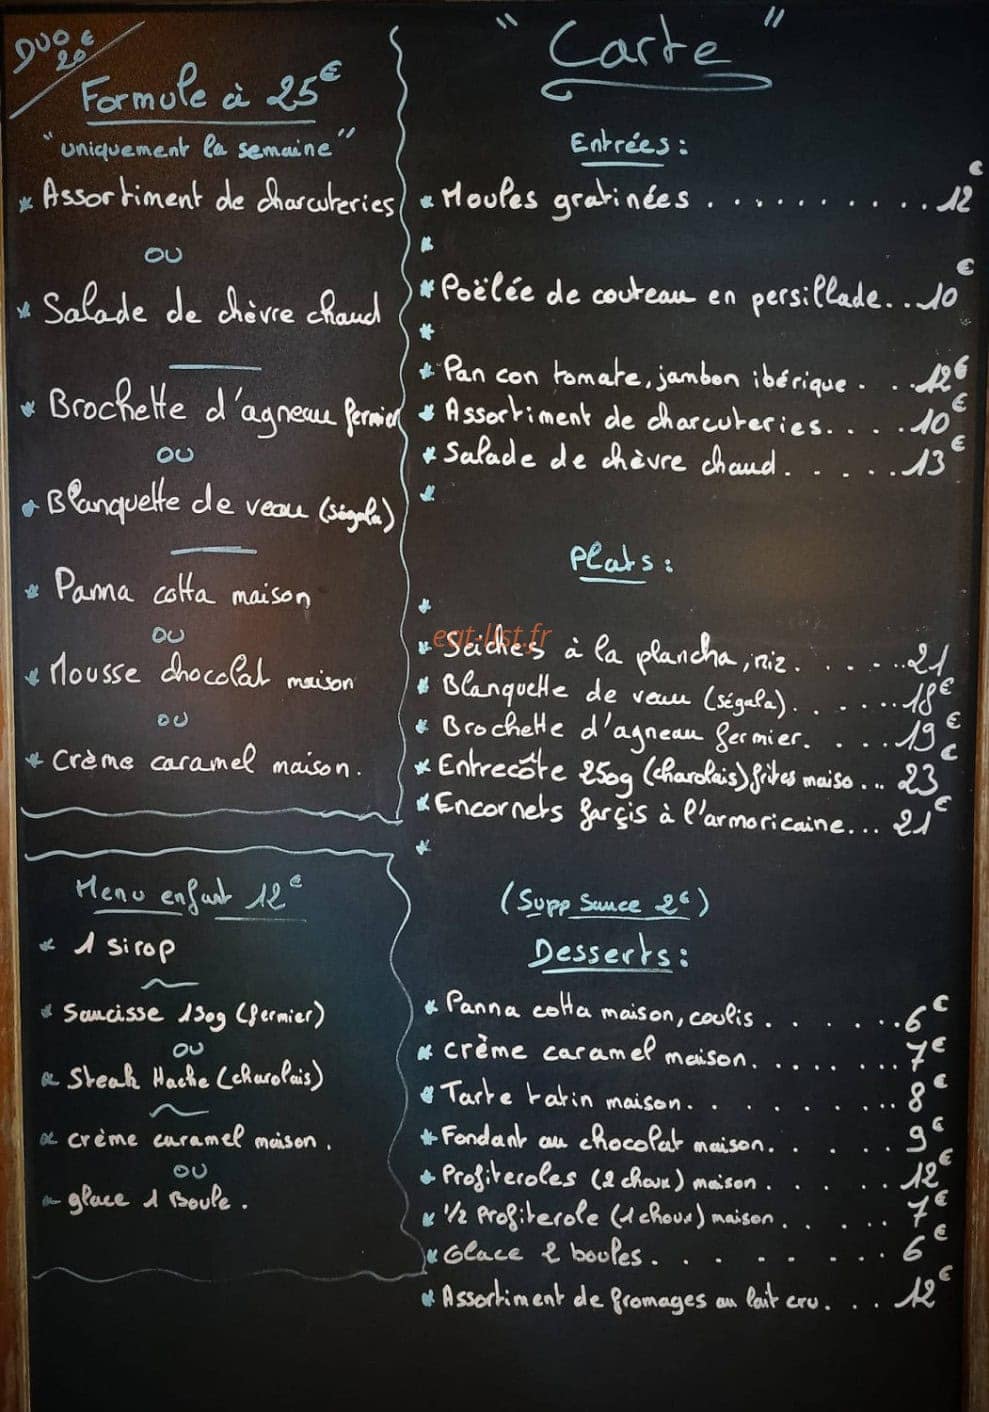 DUO
20€
Formule à 25€
"uniquement la semaine"
* Assortiment de charcuteries
ou
* Salade de chèvre chaud
* Brochette d'agneau fermier
ou
* Blanquette de veau (ségala)
* Panna cotta maison
ou
* Mousse chocolat maison
ou
* Crème caramel maison.
Menu enfant 12€
* 1 sirop
~
* Saucisse 130g (fermier)
ou
* Steak Hache (charolais)
~
* crème caramel maison.
ou
* glace 1 Boule.
"Carte"
Entrées:
* Moules gratinées .......... 12€
*
* Poëlée de couteau en persillade... 10€
*
* Pan con tomate, jambon ibérique . .. 12€
* Assortiment de charcuteries. .... 10€
* Salade de chèvre chaud. . ... 13€
*
Plats:
*
eat-list.fr
* Seiches à la plancha, riz. ...... 21
* Blanquette de veau (ségala). ..... 18€
* Brochette d'agneau fermier. .... 19€
* Entrecôte 250g (charolais) frites maiso ... 23€
* Encornets farçis à l'armoricaine... 21€
*
(Supp Sauce 2€)
Desserts:
* Panna cotta maison, coulis . ...... 6€
* crème caramel maison. ....... 7€
* Tarte tatin maison. ........ 8€
* Fondant au chocolat maison. ..... 9€
* Profiteroles (2 choux) maison . .... 12€
* 1/2 Profiterole (1 choux) maison . ..... 7€
* Glace 2 boules. ....... 6€
* Assortiment de fromages au lait cru. ... 12€